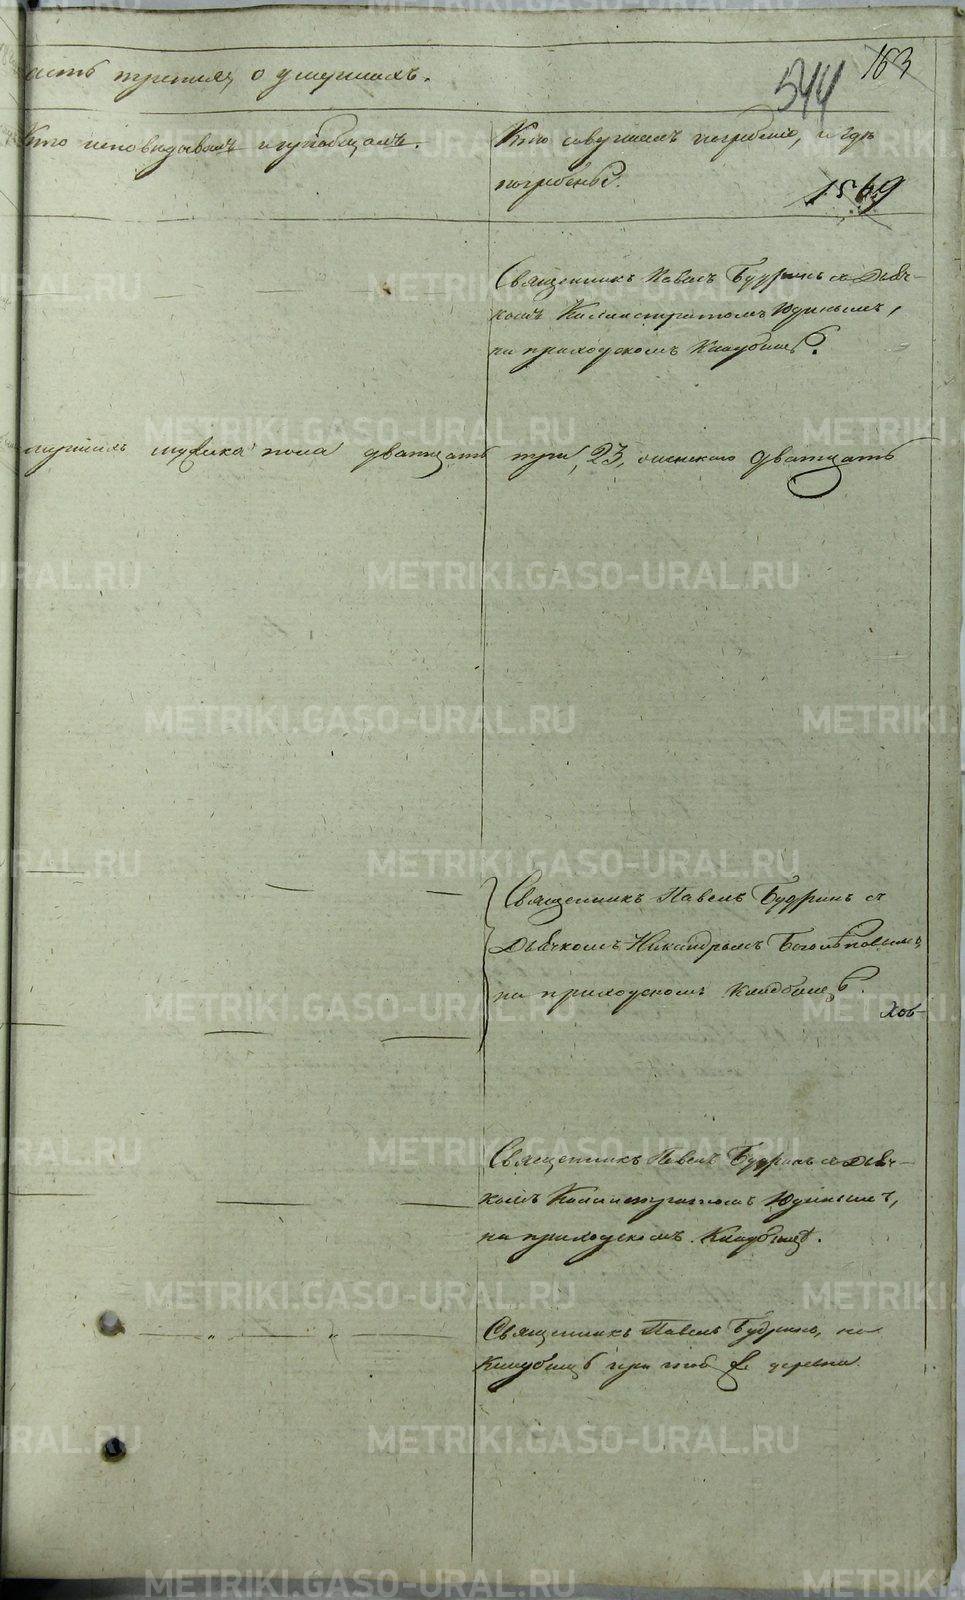 163
544
асть третія, о умершихъ.
Кто исповѣдывалъ и пріобщалъ.
Кто совершалъ погребеніе, и гдѣ
погребены.
1569
Священникъ Павелъ Будринъ съ Дьяч-
комъ Каллистратомъ Юдинымъ,
на приходскомъ Кладбищѣ.
мужеска пола дватцать три, 23, женскаго дватцать
Священникъ Павелъ Будринъ съ
Дьячкомъ Никандромъ Боголѣповымъ,
на приходскомъ Кладбищѣ.
Хов-
Священникъ Павелъ Будринъ съ Дьяч-
комъ Каллистратомъ Юдинымъ,
на приходскомъ Кладбищѣ.
Священникъ Павелъ Будринъ, на
Кладбищѣ при той же деревни.
METRIKI.GASO-URAL.RU